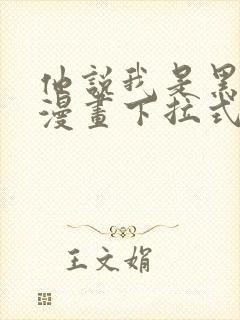 他說我是黑
漫畫下拉式
王文娟